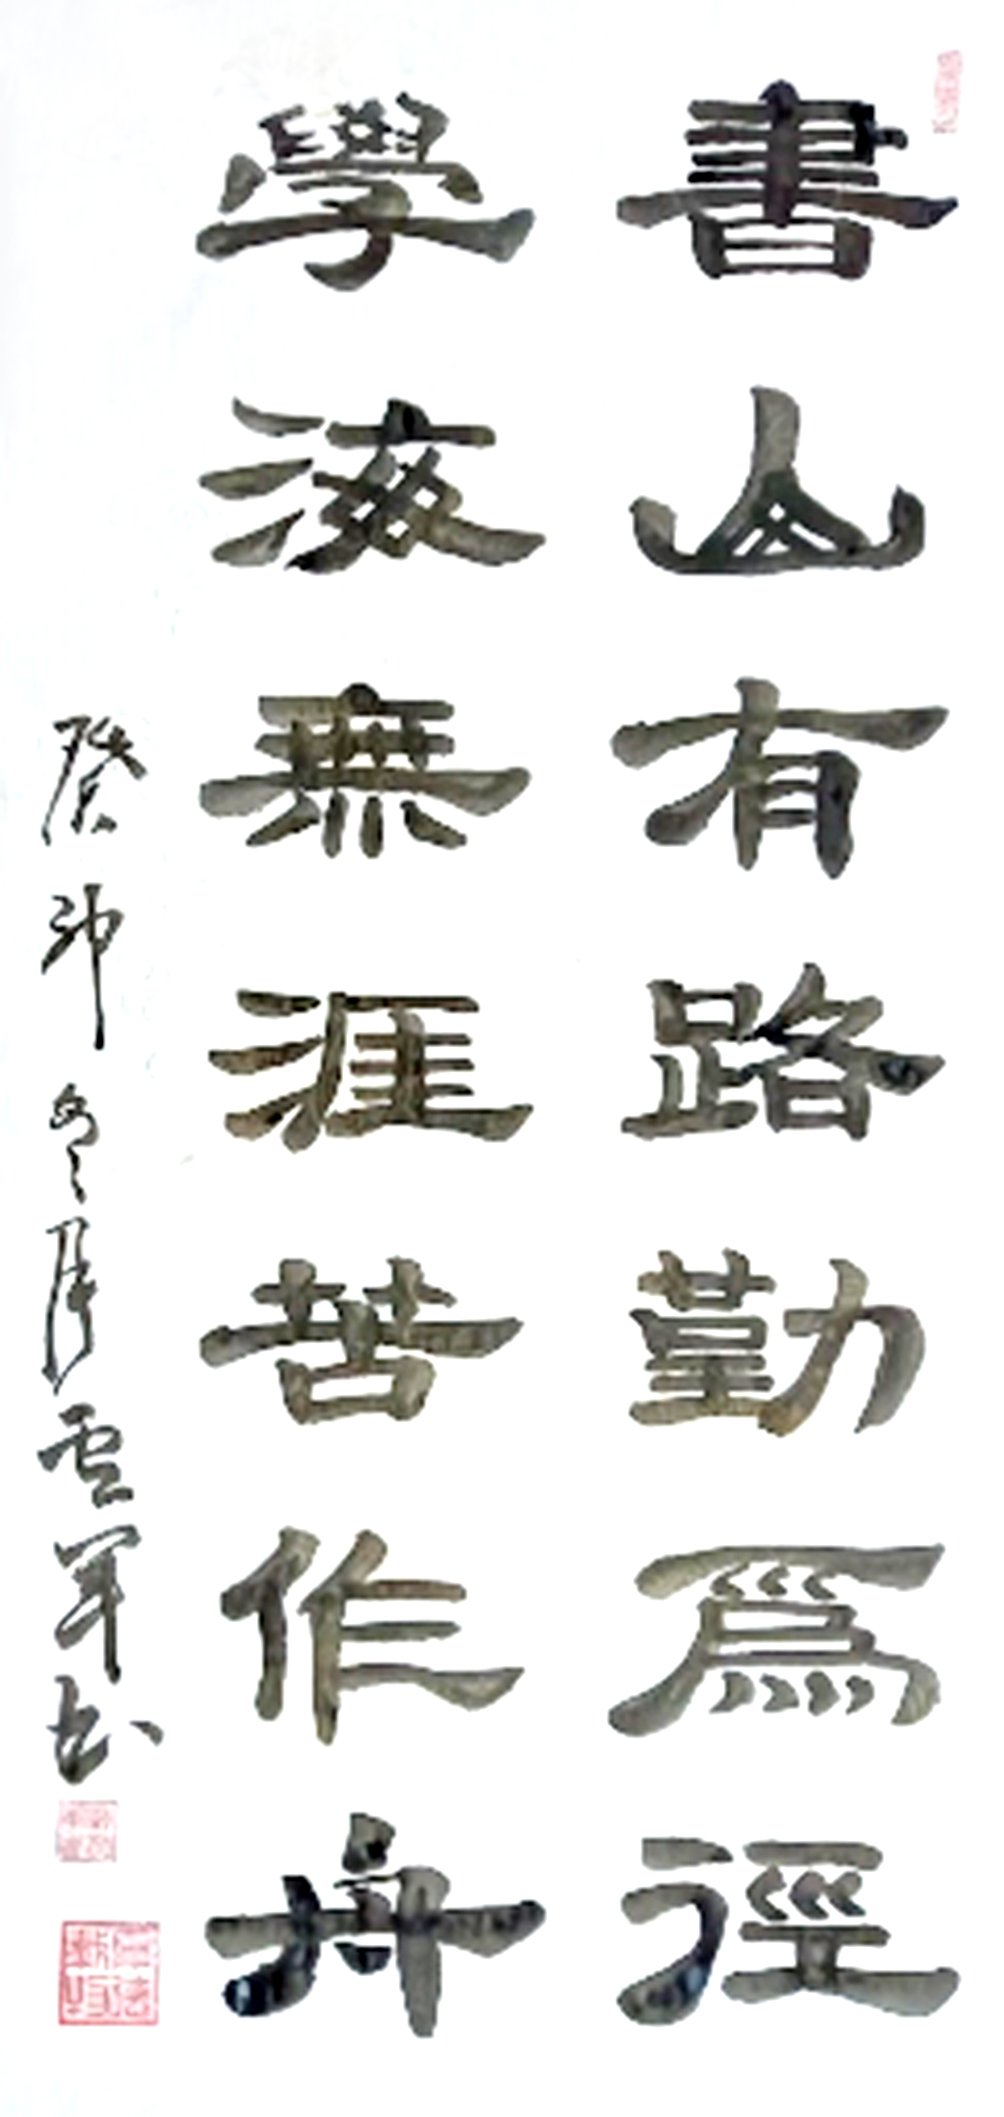 書山有路勤爲徑
學海無涯苦作舟
癸卯冬月雲軍书